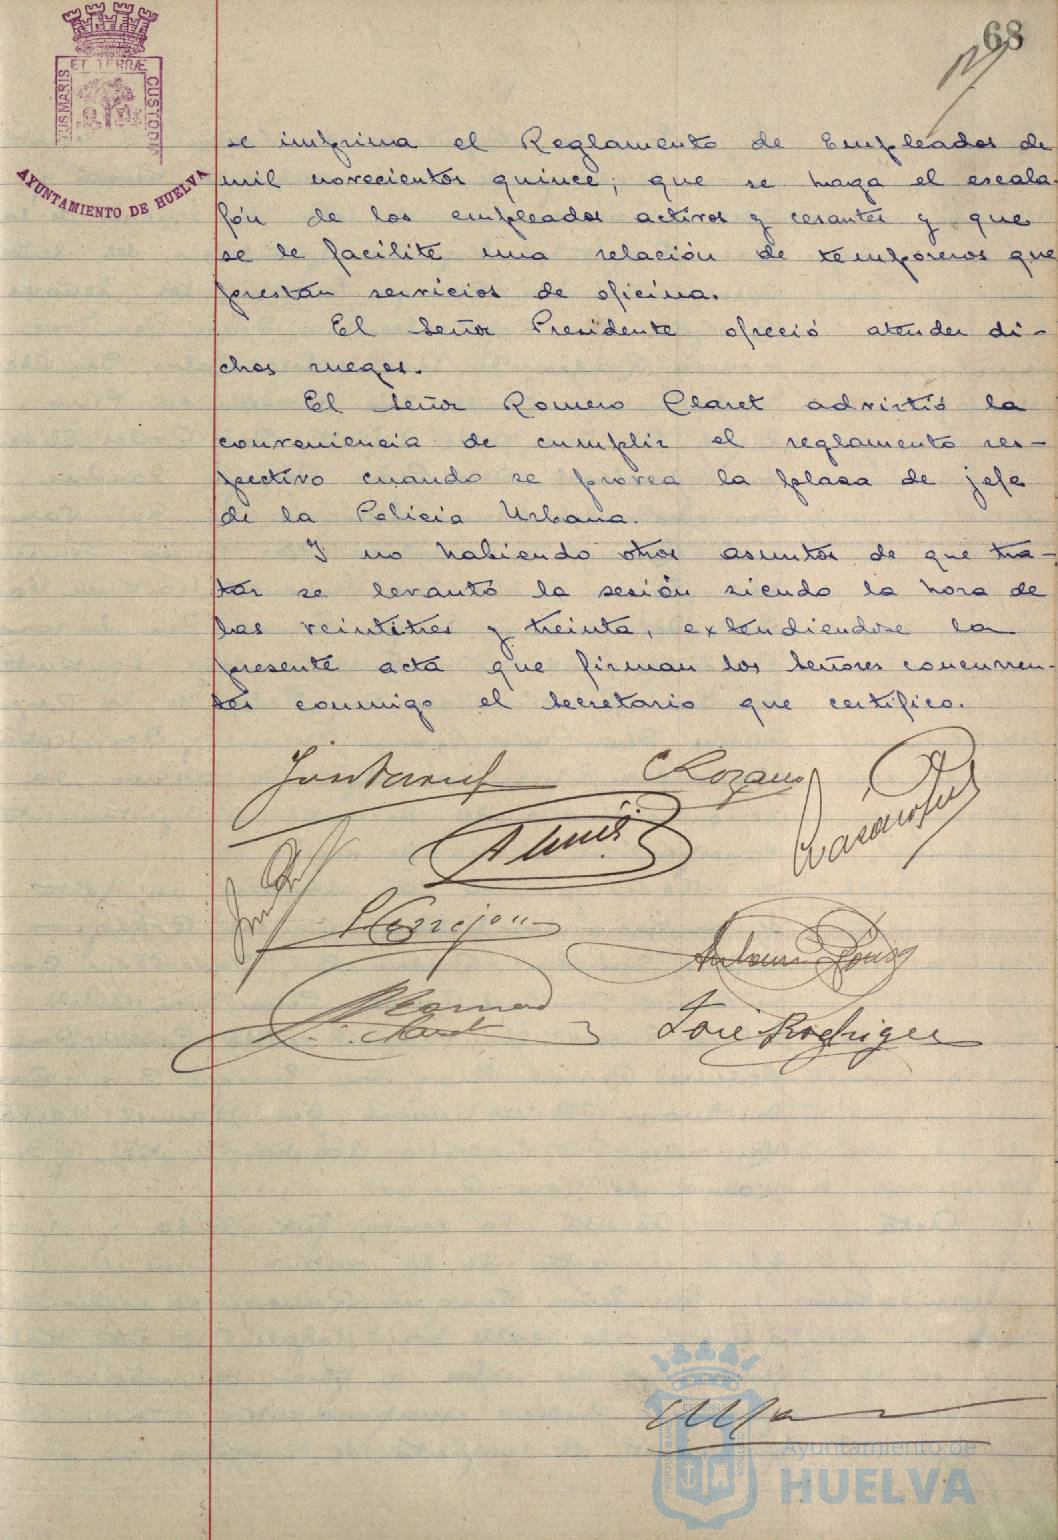 68
ET TERRÆ
TUS MARIS
CUSTODIA
AYUNTAMIENTO DE HUELVA
se imprima el Reglamento de Empleados de
mil novecientos quince; que se haga el escala-
fón de los empleados activos y cesantes y que
se le facilite una relación de temporeros que
prestan servicios de oficina.
El Señor Presidente ofreció atender di-
chos ruegos.
El Señor Romero Claret advirtió la
conveniencia de cumplir el reglamento res-
pectivo cuando se provea la plaza de jefe
de la Policia Urbana.
Y no habiendo otros asuntos de que tra-
tar se levantó la sesión siendo la hora de
las veintitres y treinta, extendiendose la
presente acta que firman los Señores concurren-
tes conmigo el Secretario que certifico.
José Rodriguez
Ayuntamiento de
HUELVA